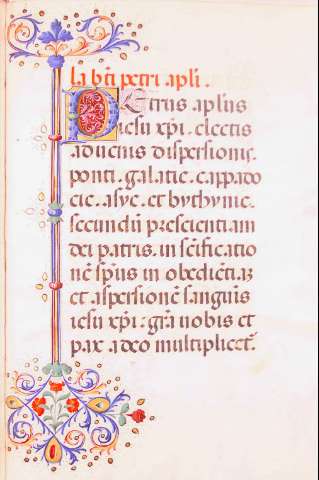 la bti petri apli.
PEtrus aplus
iesu xpi. electis
aduenis dispersionis.
ponti. galatie. cappado
cie. asye. et bythynie.
secundum prescientiam
dei patris. in scificatio
nē spūs in obediētiaz
et aspersionē sanguinis
iesu xpi: gra nobis et
pax a deo multiplicet.